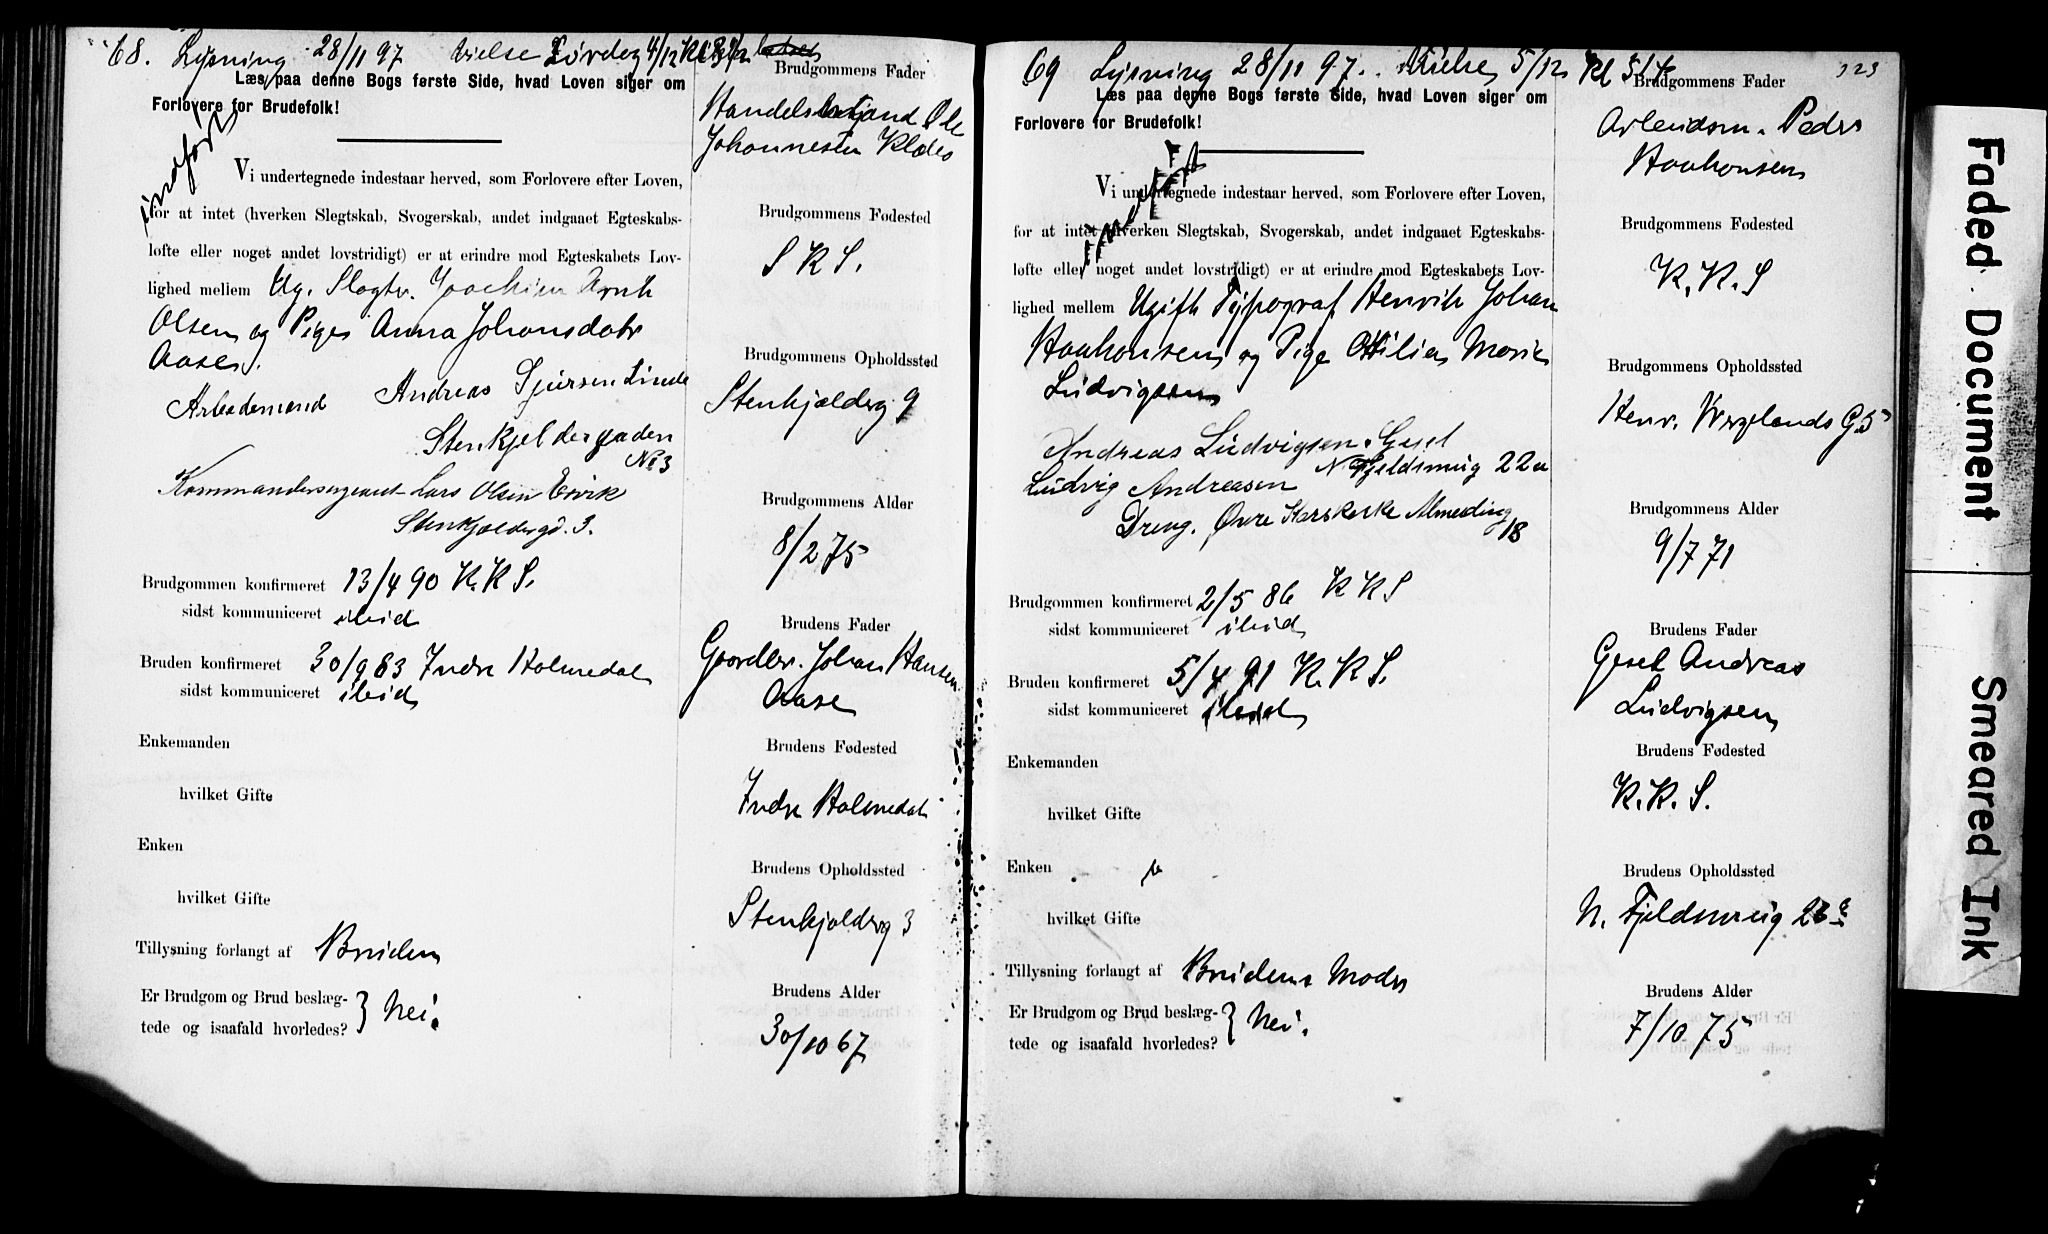 68. Lysning 28/11 97 Vielse Lørdag 4/12 Kl
Læs paa denne Bogs første Side, hvad Loven siger om
Forlovere for Brudefolk!
indført
Vi undertegnede indestaar herved, som Forlovere efter Loven,
for at intet (hverken Slegtskab, Svogerskab, andet indgaaet Egteskabs-
løfte eller noget andet lovstridigt) er at erindre mod Egteskabets Lov-
lighed mellem Ug. Slagter. Joachim
Olsen og Pige Anna Johansdatr
Aase.
Arbeidsmand Andreas Sjursen Linde
Stenkjeldergaden
No 3
Kommandersergeant Lars Olsen Eivik
Stenkjældergd. 3.
Brudgommen konfirmeret 13/4 90 K. K S.
sidst kommuniceret ibid
Bruden konfirmeret 30/9 83 Indre Holmedal
sidst kommuniceret ibid
Enkemanden
hvilket Gifte
Enken
hvilket Gifte
Tillysning forlangt af Bruden
Er Brudgom og Brud beslæg-
tede og isaafald hvorledes? } Nei.
Brudgommens Fader
Handelsbetjent Ole
Johannesen
Brudgommens Fødested
S K S.
Brudgommens Opholdssted
Stenkjælderg 9
Brudgommens Alder
8/2 75
Brudens Fader
Gaardbr. Johan Hansen
Aase
Brudens Fødested
Indre Holmedal
Brudens Opholdssted
Stenkjælderg 3
Brudens Alder
30/10 67
69 Lysning 28/11 97. Vielse 5/12 Kl 5 1/4
323
Læs paa denne Bogs første Side, hvad Loven siger om
Forlovere for Brudefolk!
indført
Vi undertegnede indestaar herved, som Forlovere efter Loven,
for at intet (hverken Slegtskab, Svogerskab, andet indgaaet Egteskabs-
løfte eller noget andet lovstridigt) er at erindre mod Egteskabets Lov-
lighed mellem Ugift Typograf Henrik Johan
Haakonsen og Pige Ottilia Marie
Ludvigsen
Andreas Ludvigsen. Gesel
N Fjeldsmug 22a
Ludvig Andreasen
Dreng. Øvre Korskirke Almending
18
Brudgommen konfirmeret 2/5 86 K K S
sidst kommuniceret ibid
Bruden konfirmeret 5/4 91 K. K S.
sidst kommuniceret ibid
Enkemanden
hvilket Gifte
Enken
hvilket Gifte
Tillysning forlangt af Brudens Moder
Er Brudgom og Brud beslæg-
tede og isaafald hvorledes? } Nei.
Brudgommens Fader
Arbeidsm. Peder
Haakonsen
Brudgommens Fødested
K. K. S
Brudgommens Opholdssted
Henr. Wergelands G. 5
Brudgommens Alder
9/7 71
Brudens Fader
Gesel Andreas
Ludvigsen
Brudens Fødested
K. K. S.
Brudens Opholdssted
N. Fjeldsmug
Brudens Alder
7/10 75
Faded Document
Smeared Ink